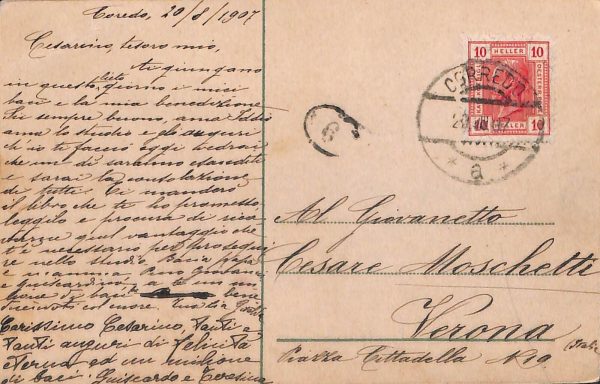 Coredo, 20/8/1907
Cesarino, tesoro mio,
ti giungano
in questo lieto giorno i miei
baci e la mia benedizione
Sii sempre buono, ama
ama lo studio e gli auguri
che io ti faccio oggi vedrai
che un dì saranno esauditi
e sarai la consolazione
di tutti. Ti manderò
il libro che ti ho promesso
leggilo e procura di
qual vantaggio che
è necessario per
re nello studio Bacia papà
e mamma.
e Guiscardo, a te un
lione di baci
di cuore.
Carissimo Cesarino, Tanti e
Tanti auguri di felicità
eterna ed un milione
di baci Guiscardo e Teresina
10 HELLER 10
10 10
CORREDO
a
6
Al Giovanetto
Cesare Moschetti
Verona
Piazza Cittadella No 9 (Italia